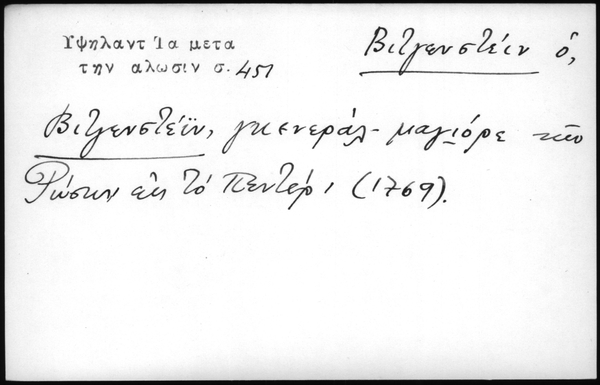 Υψηλαντ Τα μετα
την αλωσιν σ. 451
Βιτγενστέιν ὁ,
Βιτγενστέϊν, γκενεράλ-μαγιόρε τῶν
Ρώσων εἰς τό Πεντέρ, (1769).